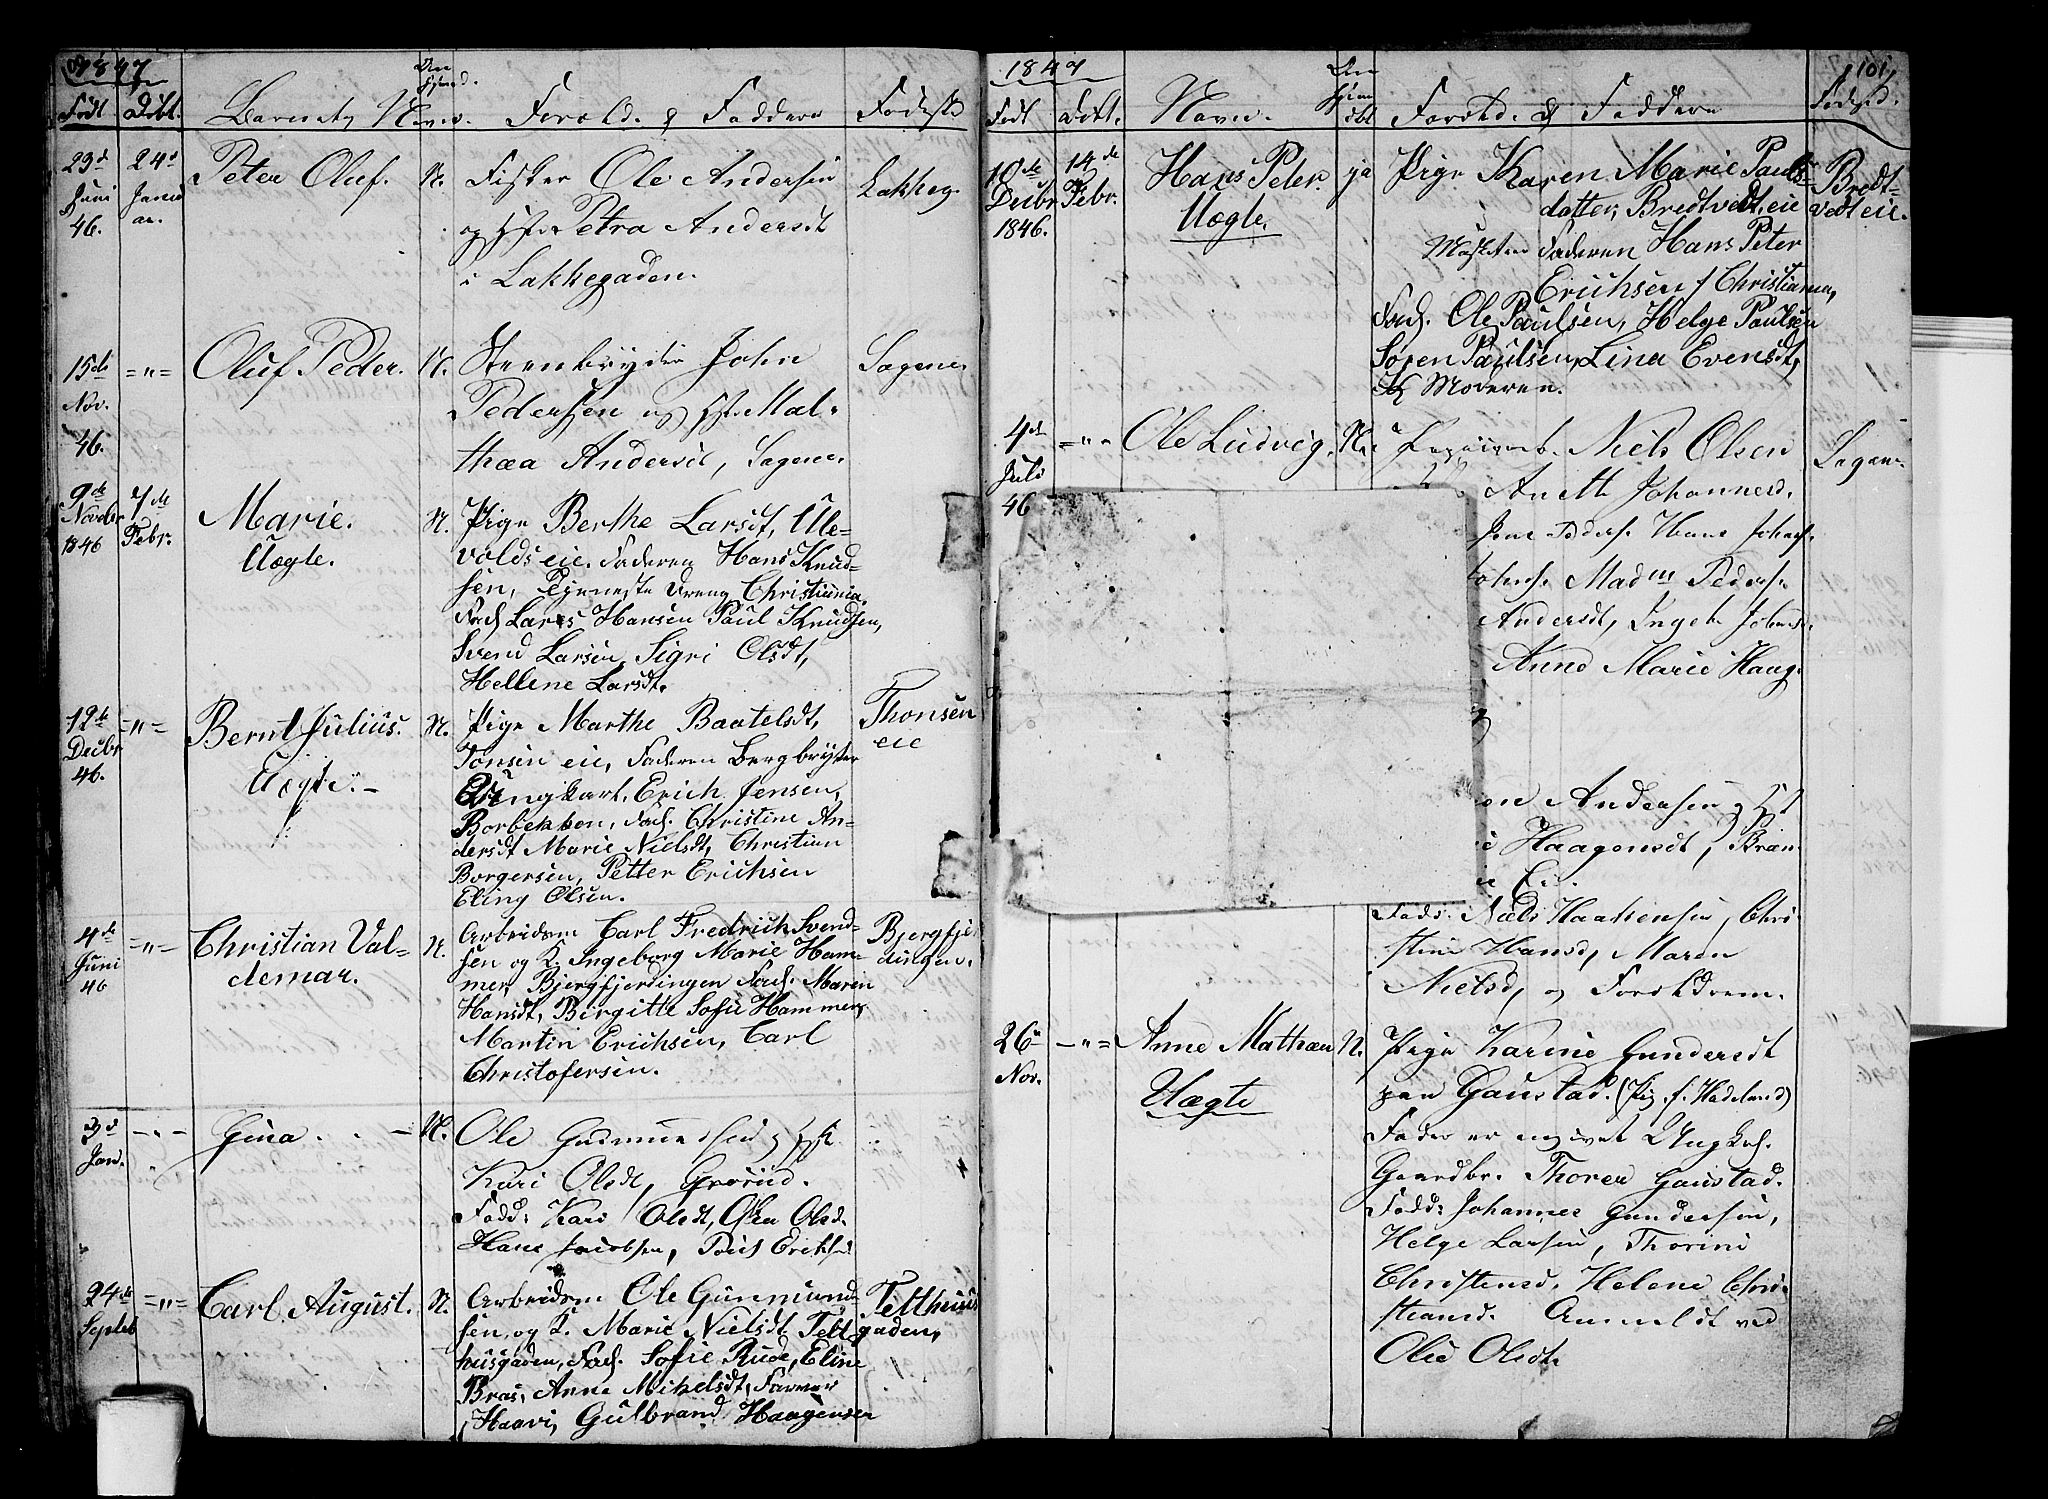 1847
Født Døbt. Barnets Navn. Foræld. & Faddere Fødest.
23d Juni 46.
24d Januar.
Peter Oluf.
N.
Fisker Ole Andersen
og Hst. Petra Andersdt
i Lakkegaden.
Lakkeg.
15de Nov. 46.
="=
Oluf Peder.
N.
Steenbryder John
Pedersen og Hst. Mal-
thea Andersdt, Sagene.
Sagene.
9de Novbr 1846
7de Febr.
Marie.
Uægte.
N.
Pige Berthe Larsdt, Ule-
volds eie. Faderen Hans Knud-
sen, Tjeneste dreng Christiania.
Fad. Lars Hansen Paul Knudsen,
Svend Larsen, Sigri Olsdt,
Hellene Larsdt.
12de Decbr 46.
="=
Bernt Julius.
Uægte.-
N.
Pige Marthe Baatelsdt,
Tonsen eie, Faderen Bergbryter
Ungkarl. Erich Jensen,
Borbekken, Fad. Christine An-
dersdt Marie Nielsdt, Christian
Borgersen, Petter Erichsen
Eling Olsen.
Thonsen
eie
4de Juni 46
="=
Christian Val-
demar.
N.
Arbeidsm Carl Fredrich Svend-
sen og K. Ingeborg Marie Ham-
mer, Bjergfjerdingen Fad. Maren
Hansdt, Birgitte Sofie Hammer,
Martin Erichsen, Carl
Christofersen.
Bjergfje
dingen.
3d Jan.
Gina.
N.
Ole Gudmundsen og Hst
Kari Olsdt, Grorud.
Fadd: Kari Olsdt, Olea Olsd.
Hans Jacobsen, Poul Eriksen
24de Septeb
="=
Carl August.
N.
Arbeidsm Ole Gunmund-
sen, og K. Marie Nielsdt Telt-
husgaden, Fad. Sofie Rude, Eline
Bras, Anne Mikelsdt,
Haavi, Gulbrand Haagensen
Telthuus
gaden,
1847
101
Født Døbt. Navn. Foræld. & Faddere Fødested.
10de Decbr 1846.
14de Febr.
Hans Peter.
Uægte.
ja
Pige Karen Marie Pauls-
datter, Bredtvedt, eie
Faderen Hans Peter
Erichsen f Christiania,
Fad. Ole Paulsen, Helge Paulsen
Søren Paulsen, Lina Evensdt,
& Moderen.
Bredt-
vedt eie.
4de Juli 46
="=
Ole Ludvig.
N.
Niels Olsen
Anette Johannesd.
Peders. Hans Johns.
Johns. Madm Peders.
Andersdt, Inge
Anne Marie Haag.
Sagene
Andersen og Hst
Haagensdt, Brän-
Fadd. Niels Haakensen, Chri-
stine Hansd, Maren
Nielsd, og Forældrene.
26de Nov.
-"=
Anne Mathæa
Uægte
N.
Pige Karine Gundersdt
paa Gaustad. (Pig. f. Hadeland)
Fader er angivet Ungkal.
Gaardbr. Thorer Gaustad.
Fadd: Johannes Gundersen,
Helge Larsen, Thorine
Christensd, Helene Chri-
stiansd. Anmeldt ved
Olea Olsdt.